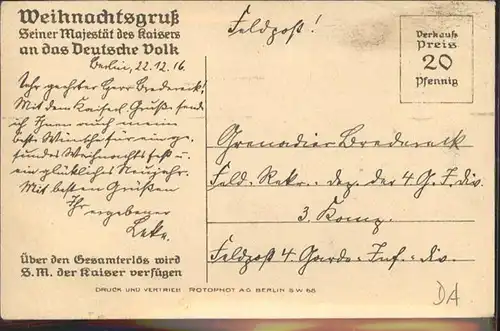 Weihnachtsgruß
Seiner Majestät des Kaisers
an das Deutsche Volk
Berlin, 22.12.16
Sehr geehrter Herr Bredereck!
Mit dem Kaiserl. Gruße sende
ich Ihnen auch meine
beste Wünsche für ein ge-
sundes Weihnachtsfest u.
ein glückliches Neujahr.
Mit besten Grüßen
Ihr
ergebener
Über den Gesamterlös wird
S.M. der Kaiser verfügen
Feldpost!
Verkaufs
Preis
20
Pfennig
Grenadier Bredereck
Feld. Rekr.-dez. der 4. G. J. div.
3. Komp.
Feldpost 4. Garde-Inf.-div.
DRUCK UND VERTRIEB ROTOPHOT AG BERLIN SW 68
DA